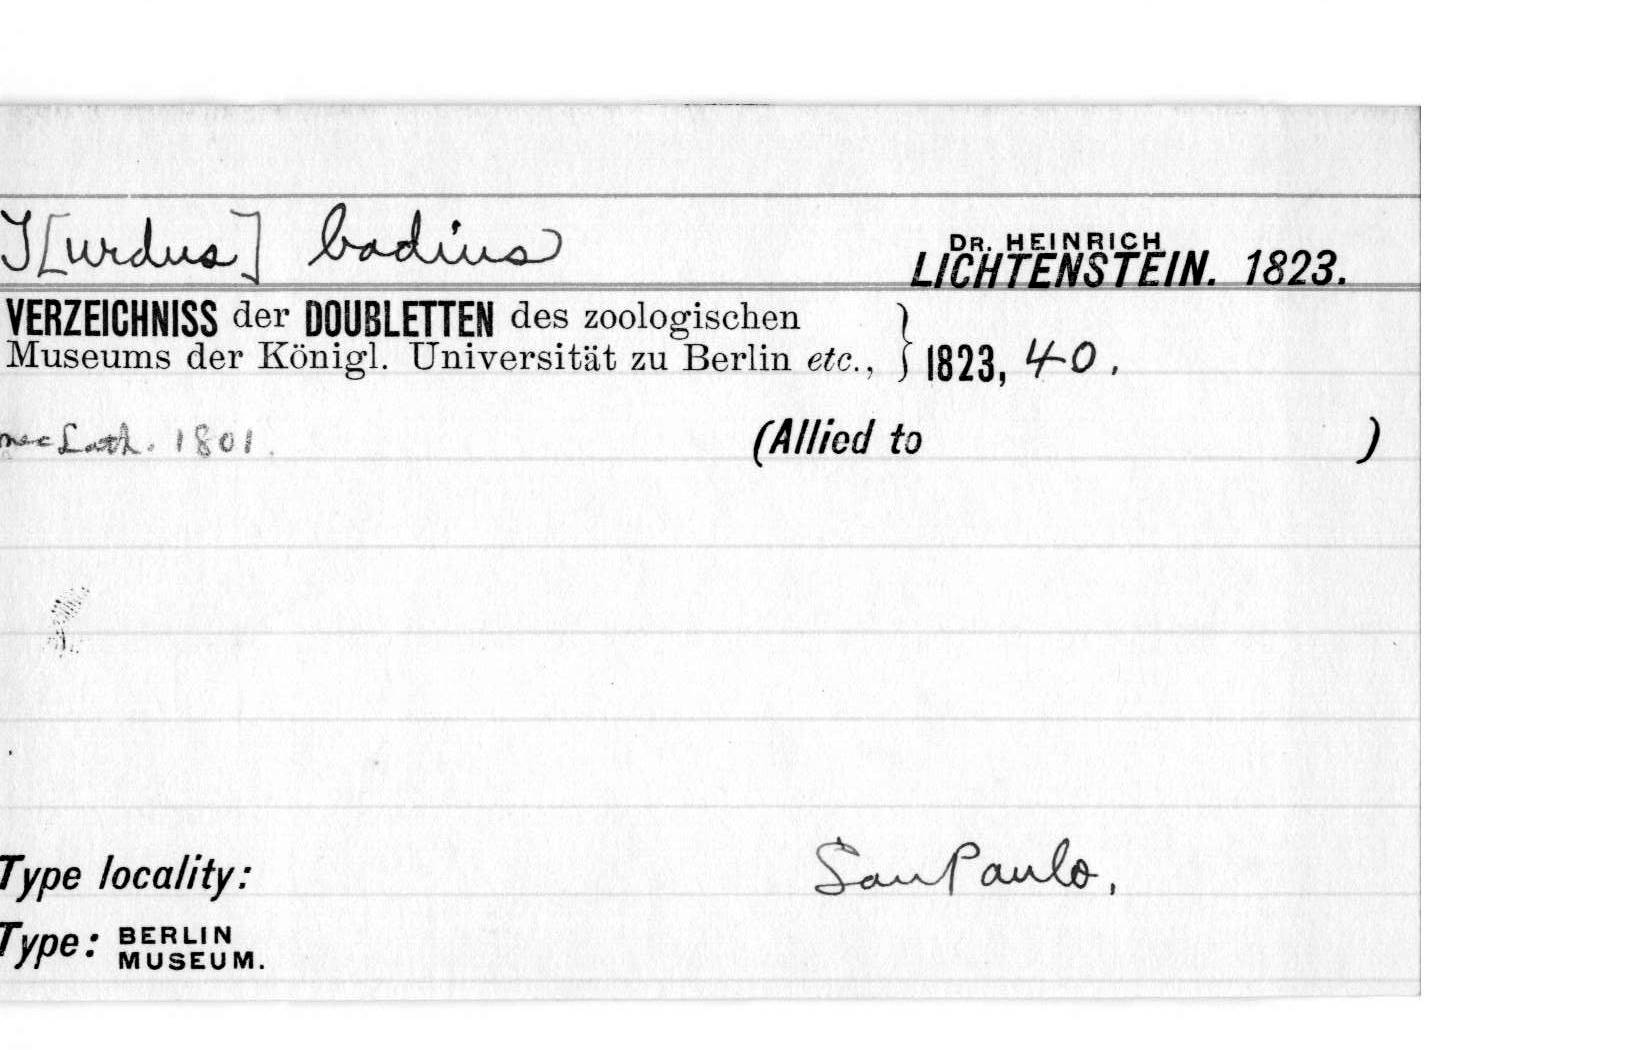 T[urdus] badius
DR. HEINRICH
LICHTENSTEIN. 1823.
VERZEICHNISS der DOUBLETTEN des zoologischen
Museums der Königl. Universität zu Berlin etc., } 1823, 40.
nec Lath. 1801.
(Allied to )
Type locality: San Paulo.
Type: BERLIN
MUSEUM.